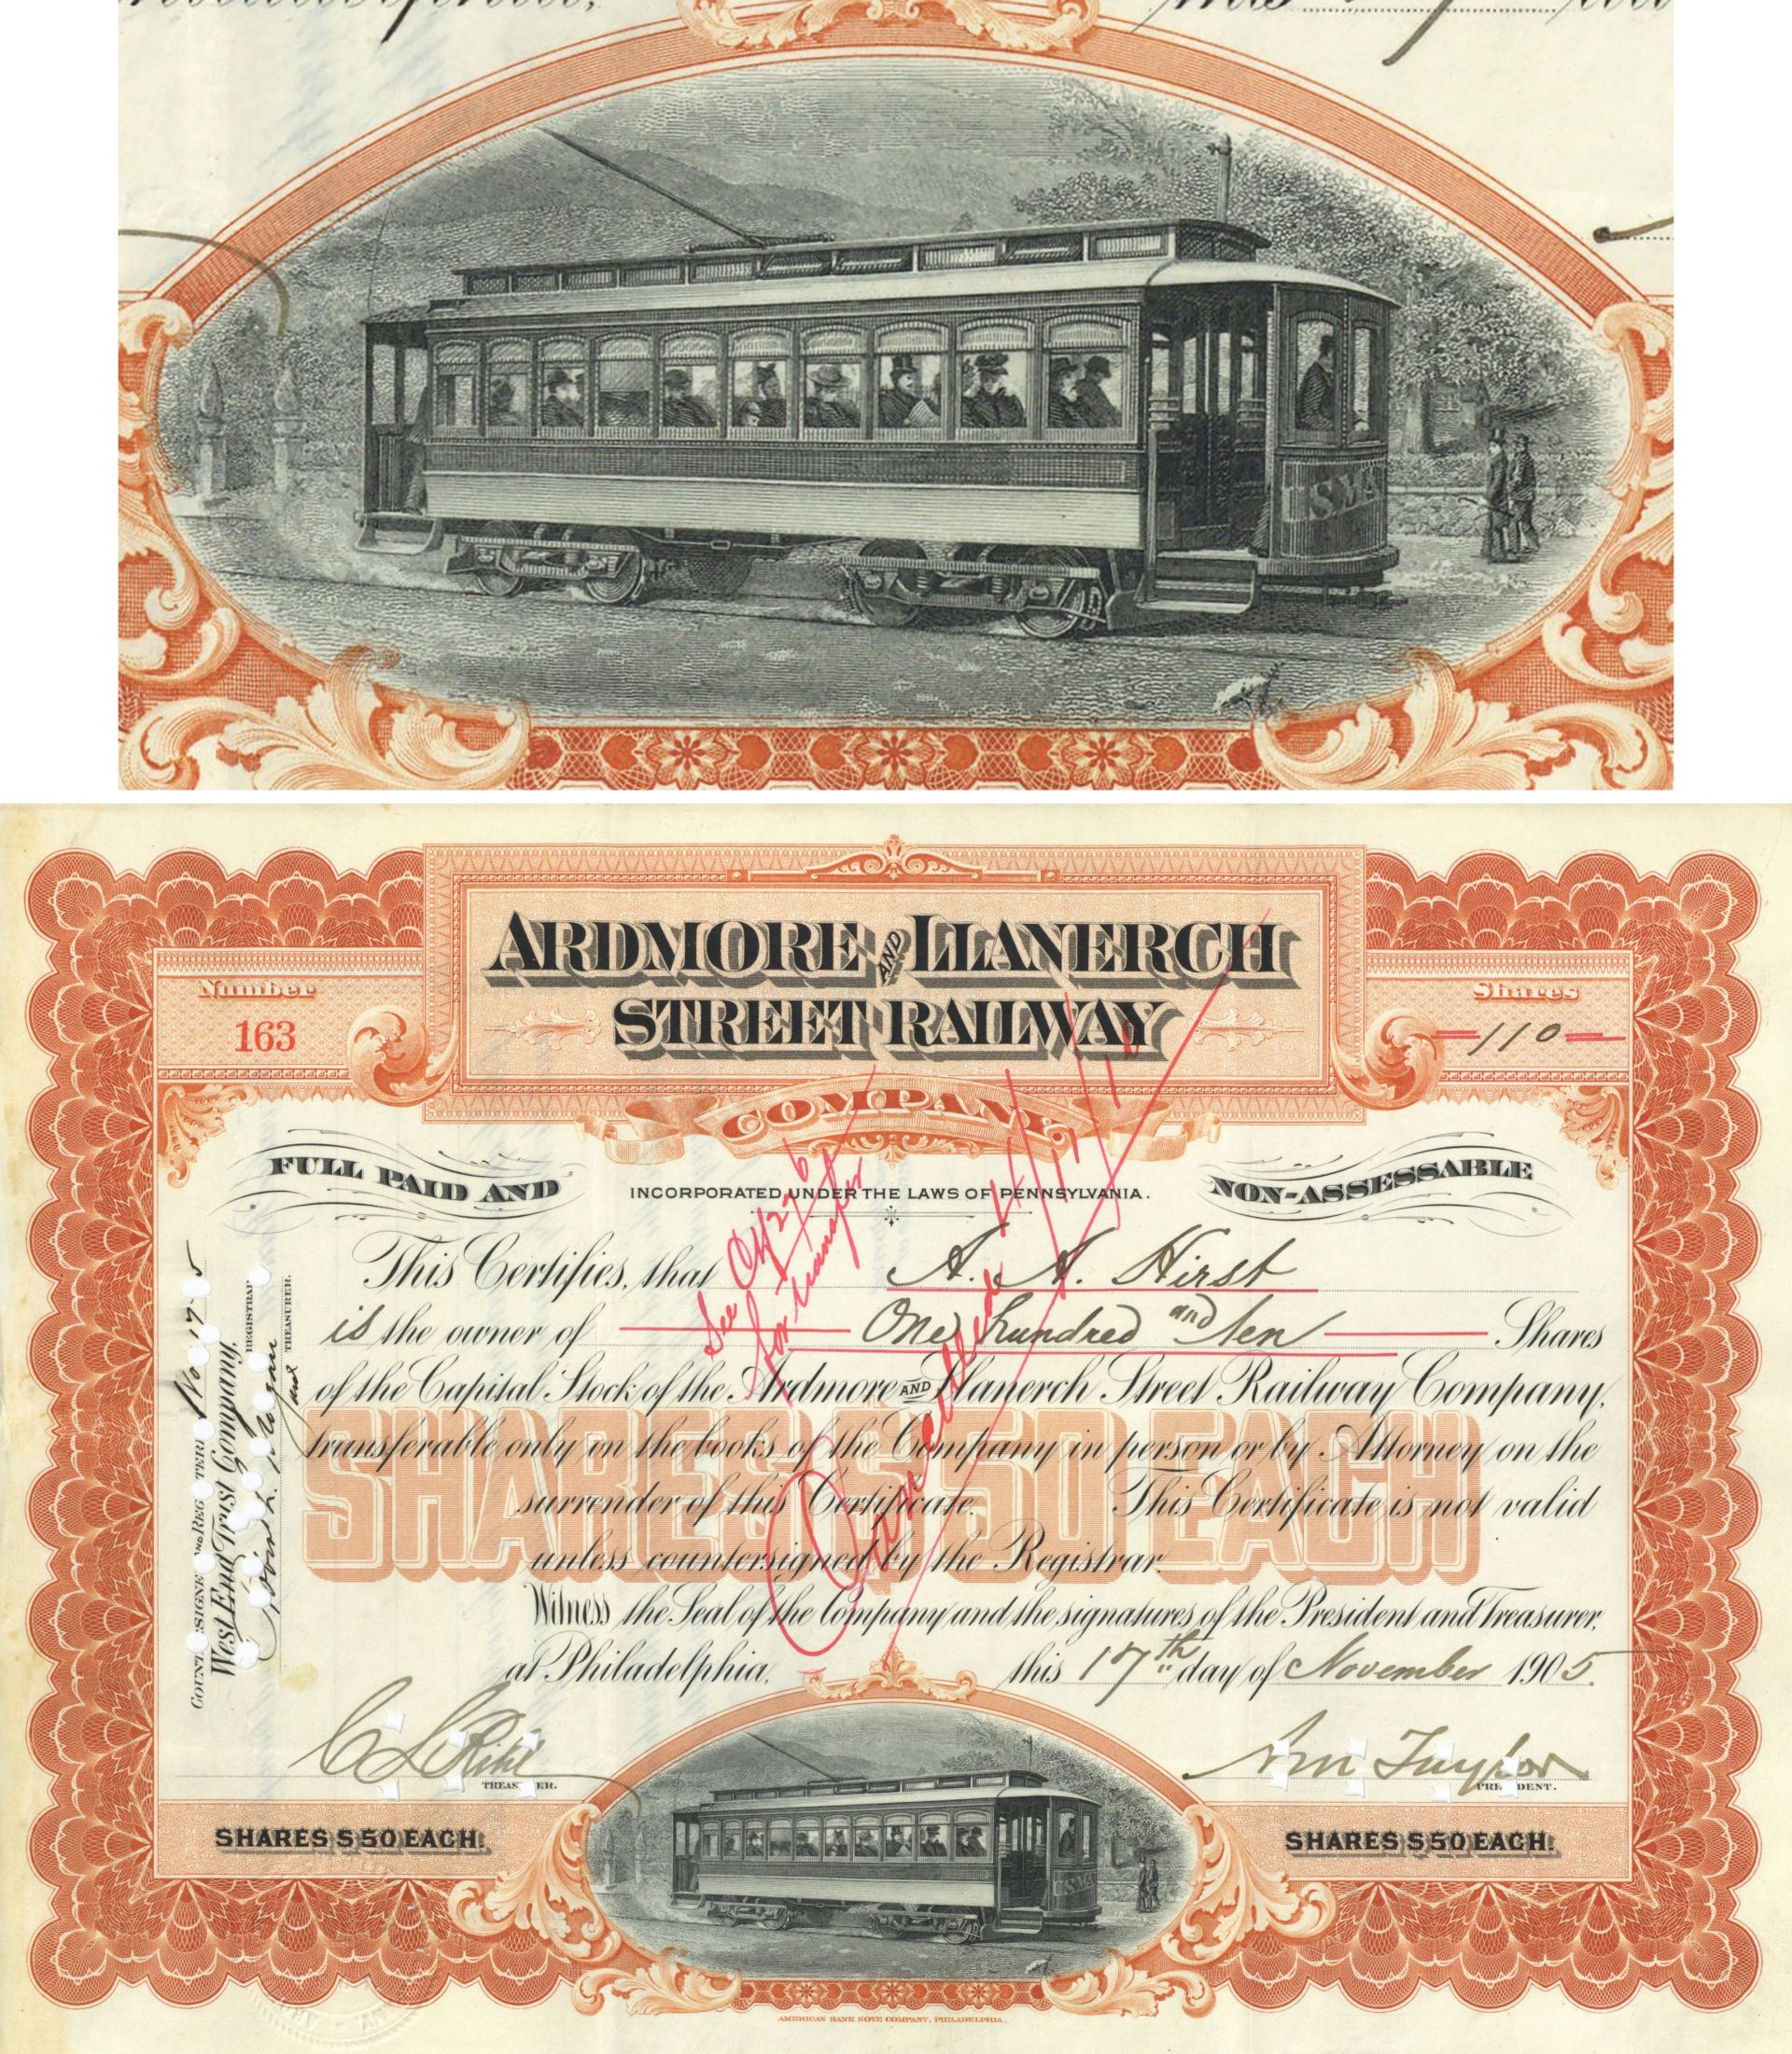 U.S.M.
ARDMORE AND LLANERCH
STREET RAILWAY
COMPANY
Number
163
Shares
110
FULL PAID AND
INCORPORATED UNDER THE LAWS OF PENNSYLVANIA.
NON-ASSESSABLE
This Certifies, that A. A. Hirst
is the owner of One hundred and ten Shares
of the Capital Stock of the Ardmore AND Llanerch Street Railway Company,
transferable only on the books of the Company in person or by Attorney on the
surrender of this Certificate. This Certificate is not valid
unless countersigned by the Registrar.
Witness the Seal of the Company and the signatures of the President and Treasurer,
at Philadelphia, this 17th day of November 1905.
SHARES $50 EACH
See
for transfer
Cancelled
West End Trust Company,
REGISTRAR
TREASURER.
TREASURER.
Wm Taylor
PRESIDENT.
SHARES $50 EACH.
SHARES $50 EACH.
AMERICAN BANK NOTE COMPANY, PHILADELPHIA.